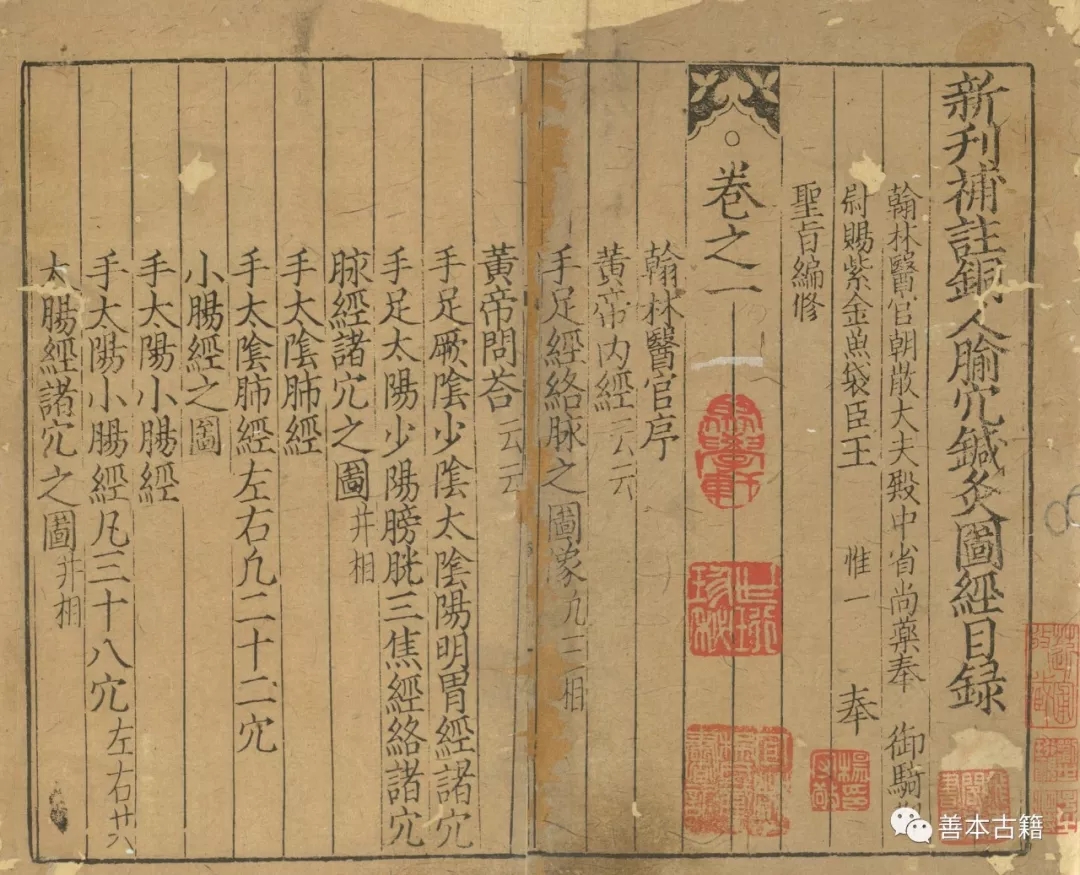 新刋補註銅人腧穴鍼灸圖經目録
翰林醫官朝散大夫殿中省尚藥奉 御騎
尉賜紫金魚袋臣王 惟一 奉
聖旨編修
卷之一
翰林醫官序
黃帝内經云云
手足經絡脉之圖象凢三相
黃帝問荅云云
手足厥陰少陰太陰陽明胃經諸穴
手足太陽少陽膀胱三焦經絡諸穴
脉經諸穴之圖并相
手太陰肺經
手太陰肺經左右凢二十二穴
小腸經之圖
手太陽小腸經
手太陽小腸經凡三十八穴左右廿六
太腸經諸穴之圖并相
楊守敬印
善本古籍